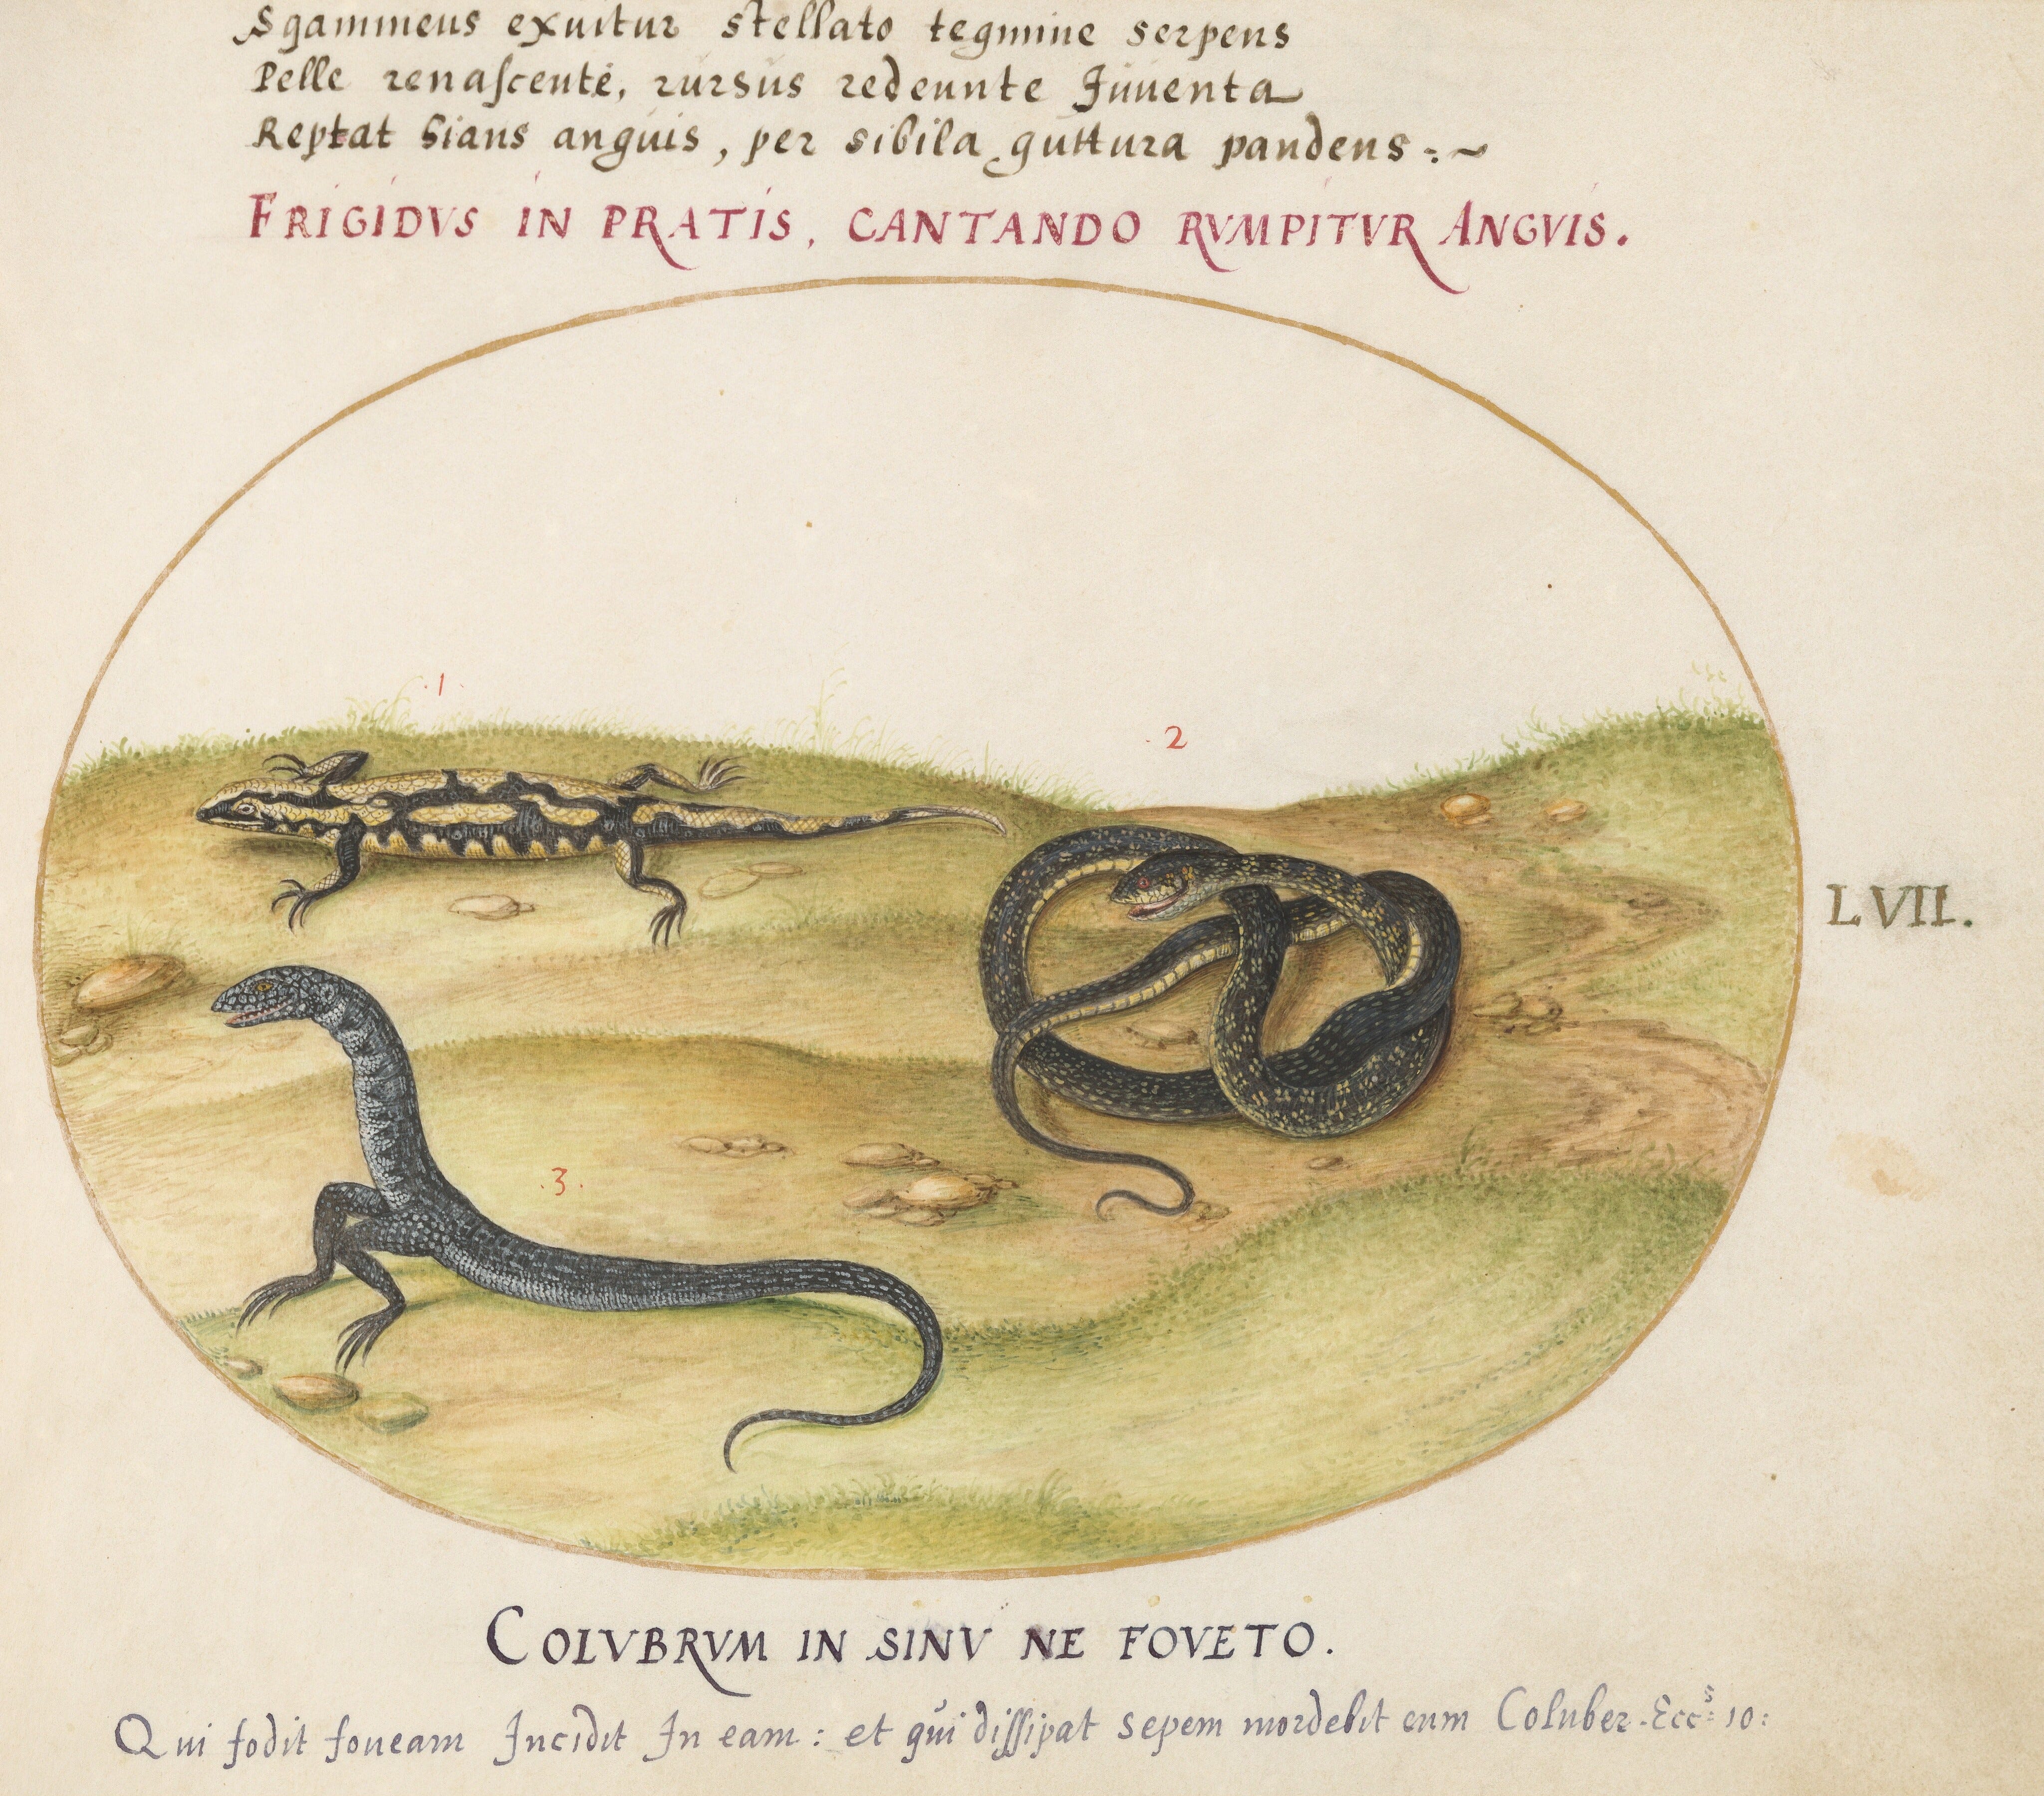 Sgammeus exuitur stellato tegmine serpens
Pelle renascente, rursus redeunte Juuenta
Reptat hians anguis, per sibila guttura pandens :~
FRIGIDVS IN PRATIS, CANTANDO RVMPITVR ANGVIS.
1
2
LVII.
3
COLVBRVM IN SINV NE FOVETO.
Qui fodit foueam Incidit In eam : et qui dissipat sepem mordebit eum Coluber. Eccs: 10: